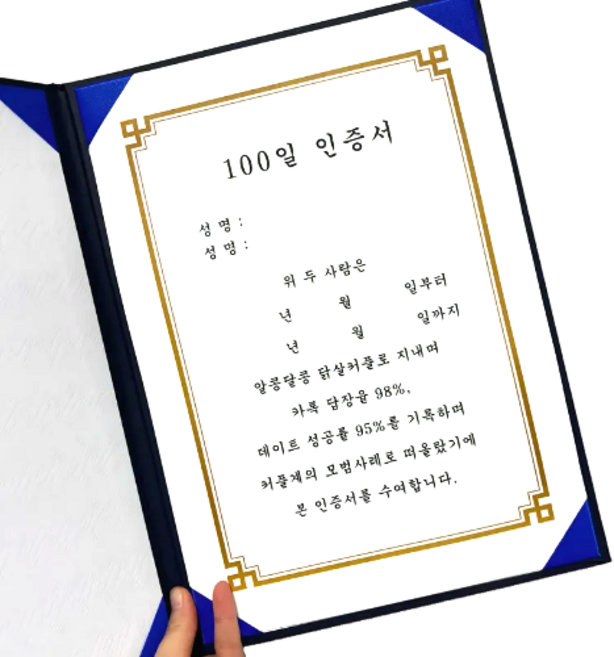 100일 인증서
성 명 :
성 명 :
위 두 사람은
년 월 일부터
년 월 일까지
알콩달콩 닭살커플로 지내며
카톡 답장율 98%,
데이트 성공률 95%를 기록하며
커플계의 모범사례로 떠올랐기에
본 인증서를 수여합니다.